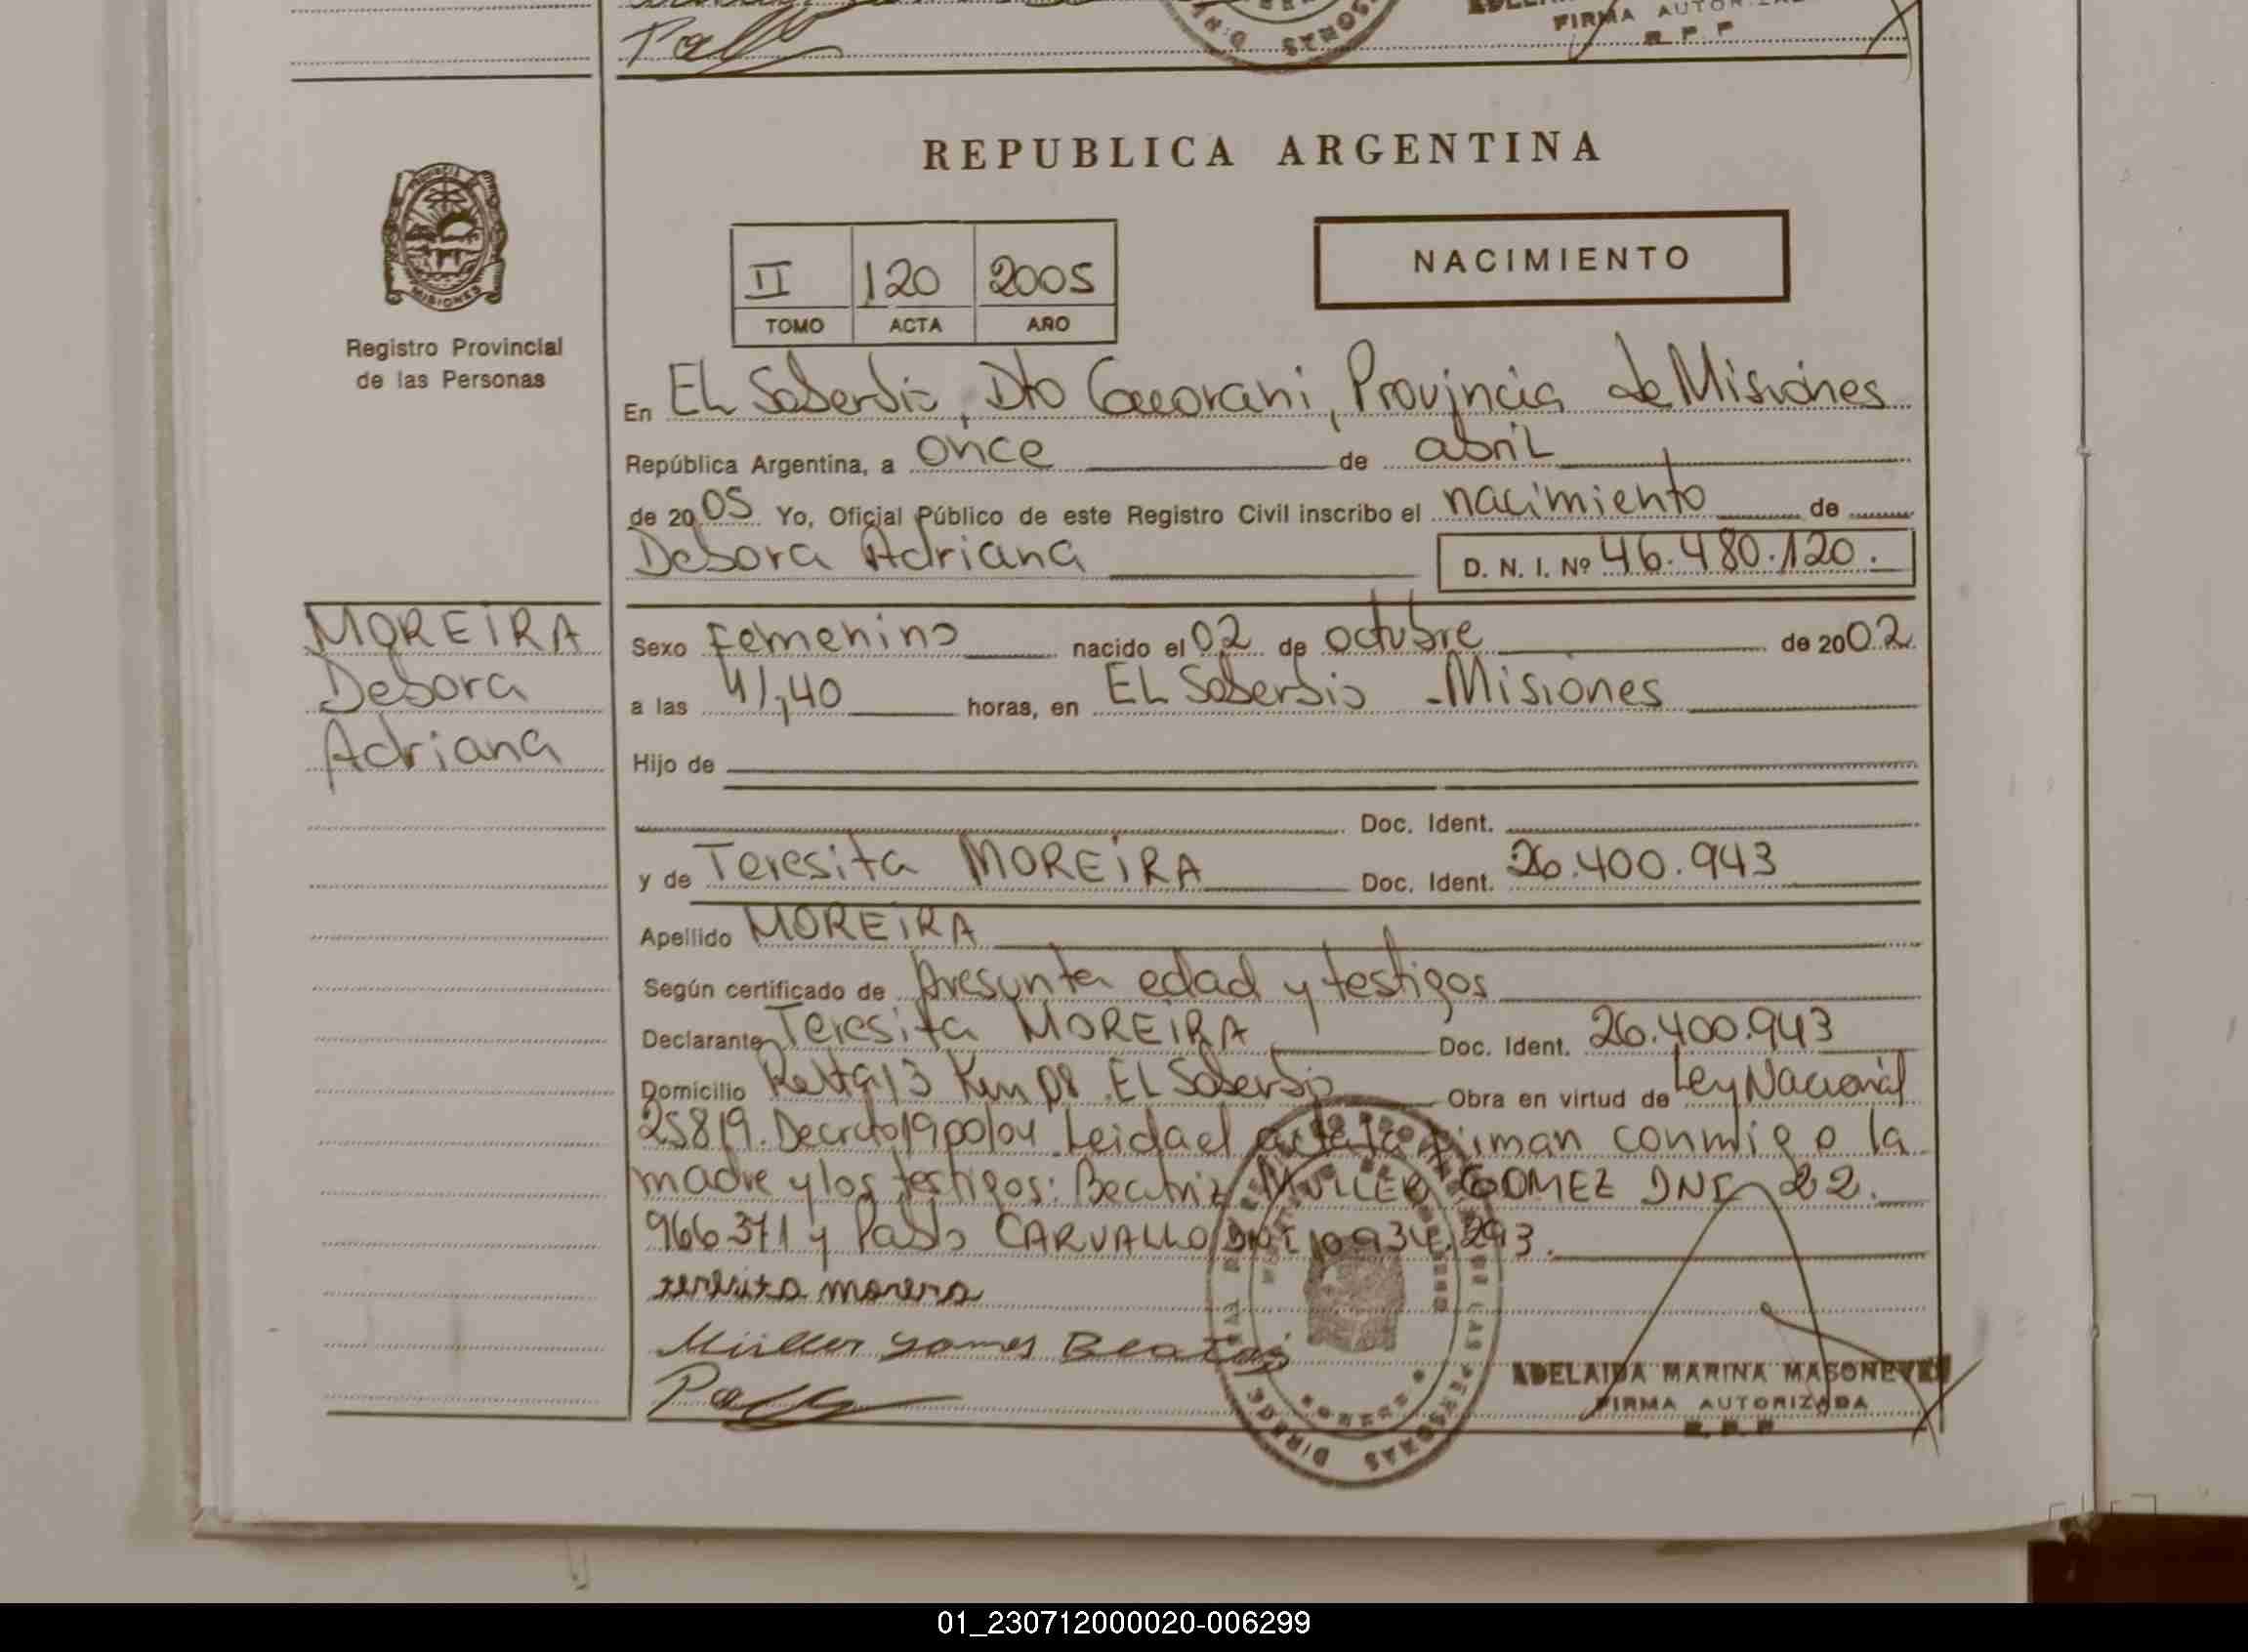 FIRMA AUTORIZADA
R. P. P
REPUBLICA ARGENTINA
MISIONES
Registro Provincial
de las Personas
II 120 2005
TOMO ACTA AÑO
NACIMIENTO
En EL Soberbio, Dto Guarani, Provincia de Misiones
República Argentina, a once de abril
de 2005 Yo, Oficial Público de este Registro Civil inscribo el nacimiento de
Debora Adriana D. N. I. Nº 46.480.120.
MOREIRA
Debora
Adriana
Sexo Femenino nacido el 02 de octubre de 2002
a las horas, en EL Soberbio - Misiones
Hijo de
Doc. Ident.
y de Teresita MOREIRA Doc. Ident. 26.400.943
Apellido MOREIRA
Según certificado de presunta edad y testigos
Declarante Teresita MOREIRA Doc. Ident. 26.400.943
Domicilio EL Soberbio Obra en virtud de Ley Nacional
25819. Decreto 1900/04 Leida el acta la firman conmigo la
madre y los testigos: Beatriz MULLER GOMEZ DNI 22.
966371 y Pablo CARVALLO DNI 10934.293.
teresita morera
Müller gomes Beatris
ADELAIDA MARINA MASONEVE
FIRMA AUTORIZADA
R. P. P
01_230712000020-006299